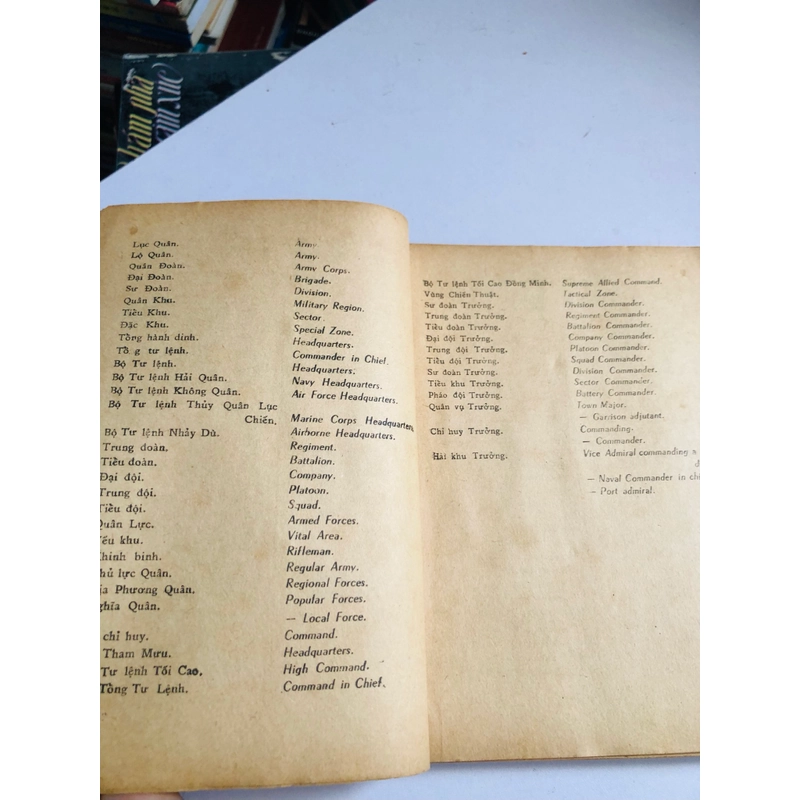 Lục Quân. Army.
Lộ Quân. Army.
Quân Đoàn. Army Corps.
Đại Đoàn. Brigade.
Sư Đoàn. Division.
Quân Khu. Military Region.
Tiểu Khu. Sector.
Đặc Khu. Special Zone.
Tổng hành dinh. Headquarters.
Tổ g tư lệnh. Commander in Chief.
Bộ Tư lệnh. Headquarters.
Bộ Tư lệnh Hải Quân. Navy Headquarters.
Bộ Tư lệnh Không Quân. Air Force Headquarters.
Bộ Tư lệnh Thủy Quân Lục
Chiến. Marine Corps Headquarters.
Bộ Tư lệnh Nhảy Dù. Airborne Headquarters.
Trung đoàn. Regiment.
Tiểu đoàn. Battalion.
Đại đội. Company.
Trung đội. Platoon.
Tiểu đội. Squad.
Quân Lực. Armed Forces.
Yếu khu. Vital Area.
Khinh binh. Rifleman.
hủ lực Quân. Regular Army.
ịa Phương Quân. Regional Forces.
ghĩa Quân. Popular Forces.
-- Local Force.
chỉ huy. Command.
Tham Mưu. Headquarters.
Tư lệnh Tối Cao. High Command.
Tổng Tư Lệnh. Command in Chief.
Bộ Tư lệnh Tối Cao Đồng Minh. Supreme Allied Command.
Vùng Chiến Thuật. Tactical Zone.
Sư đoàn Trưởng. Division Commander.
Trung đoàn Trưởng. Regiment Commander.
Tiểu đoàn Trưởng. Battalion Commander.
Đại đội Trưởng. Company Commander.
Trung đội Trưởng. Platoon Commander.
Tiểu đội Trưởng. Squad Commander.
Sư đoàn Trưởng. Division Commander.
Tiểu khu Trưởng. Sector Commander.
Pháo đội Trưởng. Battery Commander.
Quân vụ Trưởng. Town Major.
— Garrison adjutant.
Chỉ huy Trưởng. Commanding.
— Commander.
Hải khu Trưởng. Vice Admiral commanding x
d
— Naval Commander in chi
— Port admiral.